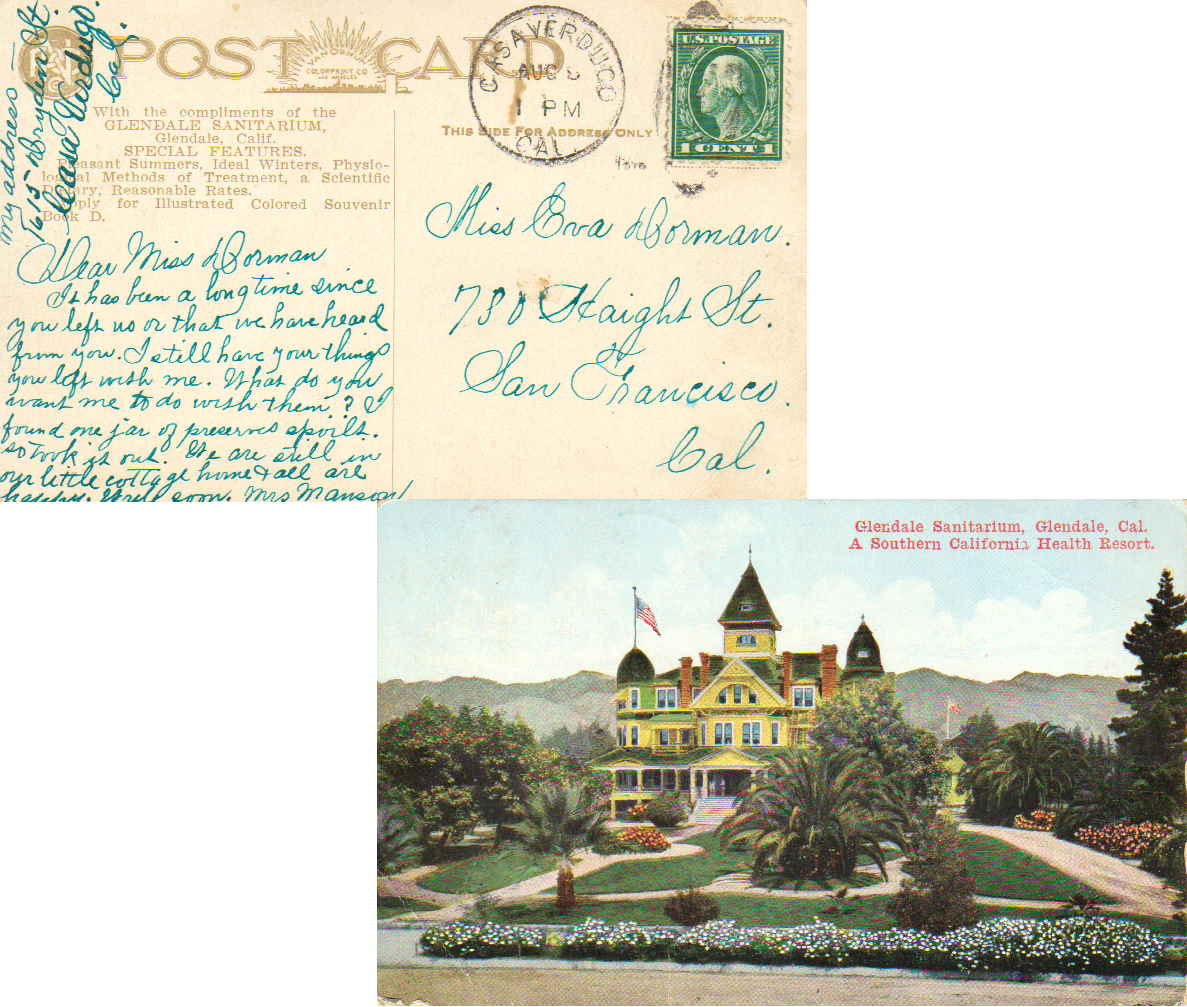 POST CARD
VAN ORNUM
COLORPRINT CO
LOS ANGELES
CASA VERDUGO
AUG
1 PM
CAL.
U.S. POSTAGE
1 CENT 1
THIS SIDE FOR ADDRESS ONLY
With the compliments of the
GLENDALE SANITARIUM,
Glendale, Calif.
SPECIAL FEATURES.
Pleasant Summers, Ideal Winters, Physio-
logical Methods of Treatment, a Scientific
Dietary, Reasonable Rates.
Apply for Illustrated Colored Souvenir
Book D.
My address —
1615 Dryden St.
Casa Verdugo.
Cal.
Dear Miss Dorman
It has been a long time since
you left us or that we have heard
from you. I still have your things
you left with me. What do you
want me to do with them? I
found one jar of preserves spoilt.
so took it out. We are still in
our little cottage home & all are
happy. Write soon. Mrs Manson
Miss Eva Dorman.
730 Haight St.
San Francisco.
Cal.
Glendale Sanitarium, Glendale, Cal.
A Southern California Health Resort.